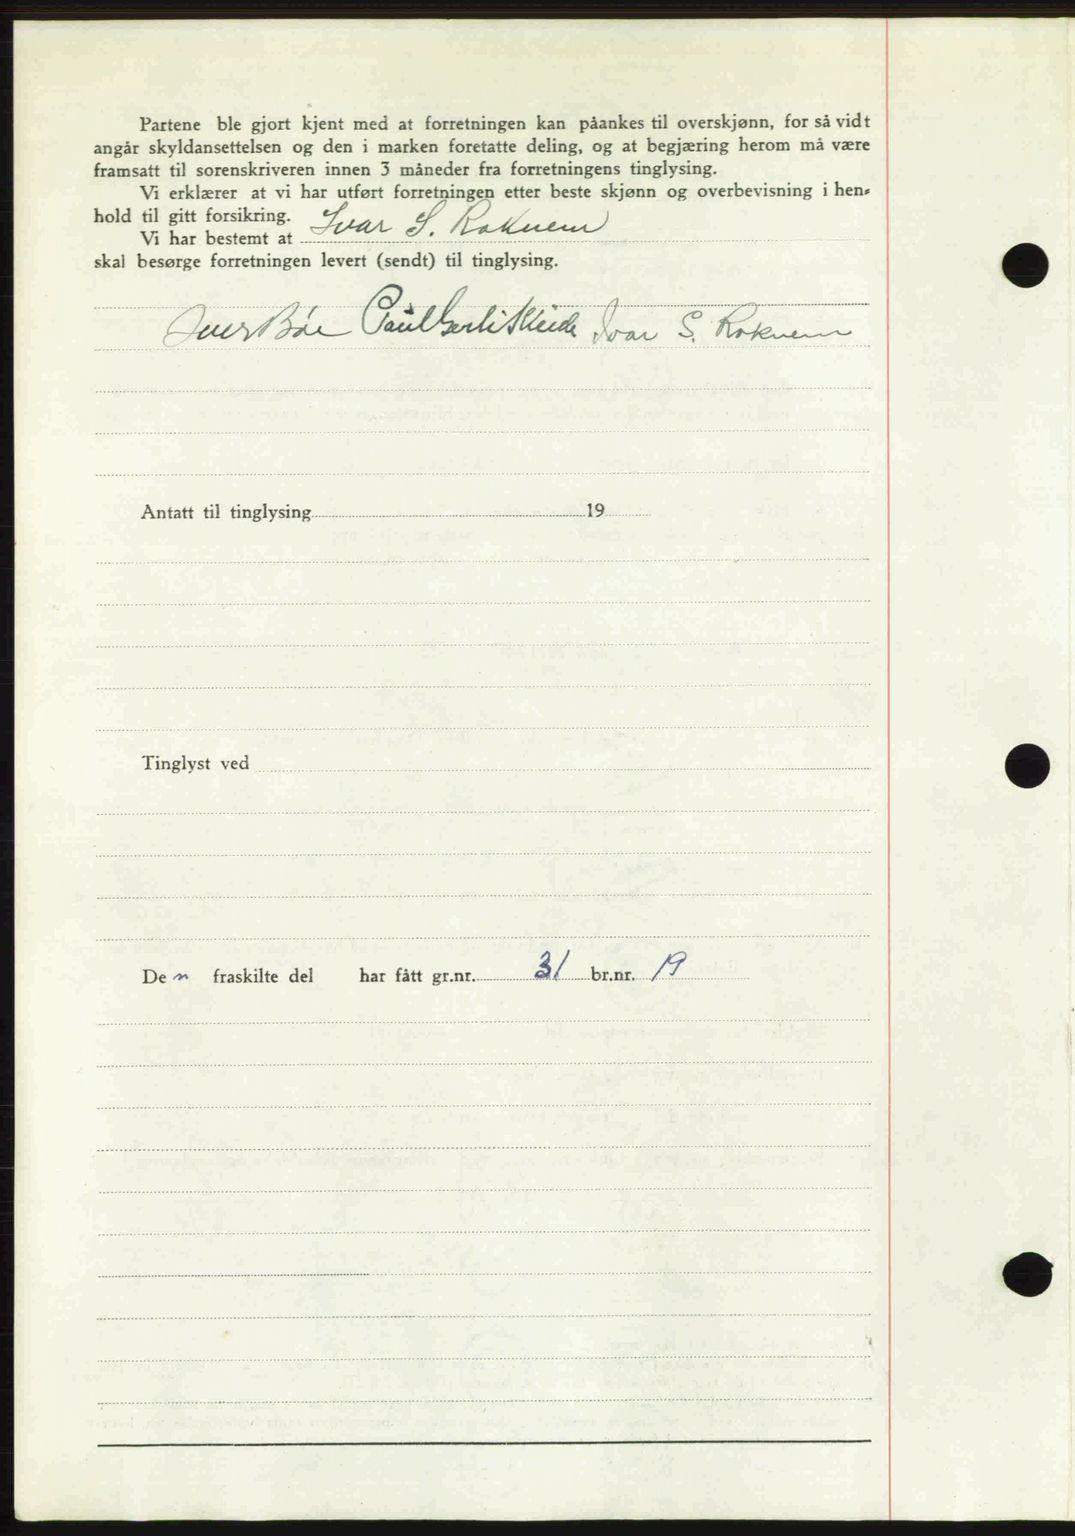 Partene ble gjort kjent med at forretningen kan påankes til overskjønn, for så vidt
angår skyldansettelsen og den i marken foretatte deling, og at begjæring herom må være
framsatt til sorenskriveren innen 3 måneder fra forretningens tinglysing.
Vi erklærer at vi har utført forretningen etter beste skjønn og overbevisning i hen-
hold til gitt forsikring.
Vi har bestemt at Ivar S. Roknem
skal besørge forretningen levert (sendt) til tinglysing.
Iver Bøe Paul Ivar S. Roknem
Antatt til tinglysing 19
Tinglyst ved
Den fraskilte del har fått gr.nr. 31 br.nr. 19